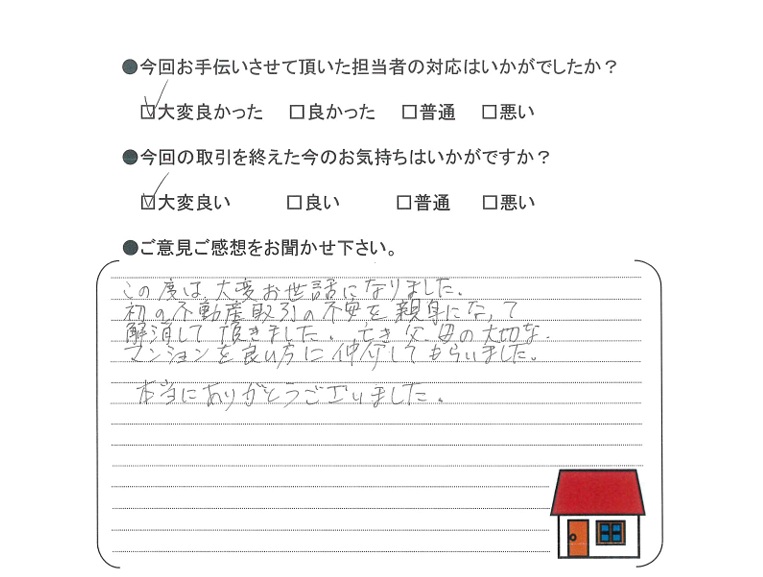 ●今回お手伝いさせて頂いた担当者の対応はいかがでしたか？
☑大変良かった □良かった □普通 □悪い
●今回の取引を終えた今のお気持ちはいかがですか？
☑大変良い □良い □普通 □悪い
●ご意見ご感想をお聞かせ下さい。
この度は、大変お世話になりました。
初の不動産取引の不安を親身になって
解消して頂きました。亡き父、母の大切な
マンションを良い方に仲介してもらいました。
本当にありがとうございました。